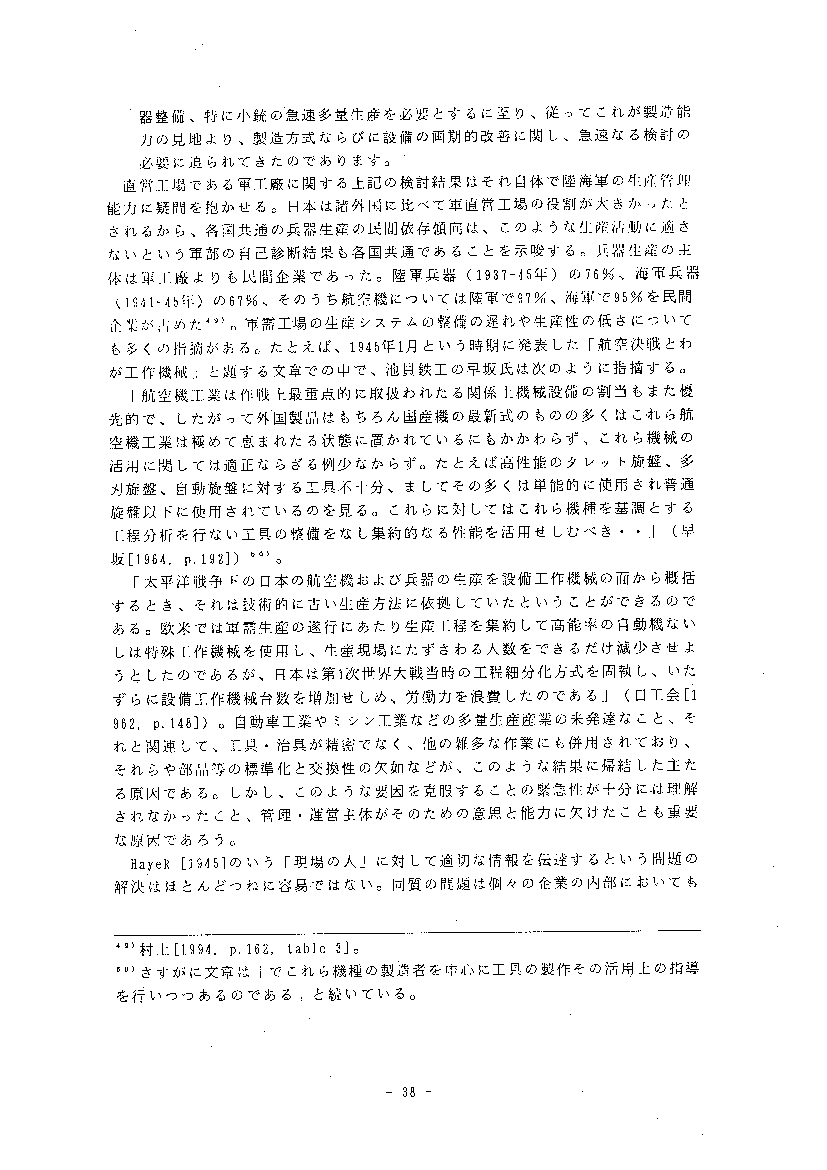 器整備、特に小銃の急速多量生産を必要とするに至り、従ってこれが製造能
力の見地より、製造方式ならびに設備の画期的改善に関し、急速なる検討の
必要に迫られてきたのであります。
直営工場である軍工廠に関する上記の検討結果はそれ自体で陸海軍の生産管理
能力に疑問を抱かせる。日本は諸外国に比べて軍直営工場の役割が大きかったと
されるから、各国共通の兵器生産の民間依存傾向は、このような生産活動に適さ
ないという軍部の自己診断結果も各国共通であることを示唆する。兵器生産の主
体は軍工廠よりも民間企業であった。陸軍兵器（1937-45年）の76％、海軍兵器
（1941-45年）の67％、そのうち航空機については陸軍で97％、海軍で95％を民間
企業が占めた⁴⁹⁾。軍需工場の生産システムの整備の遅れや生産性の低さについて
も多くの指摘がある。たとえば、1945年1月という時期に発表した「航空決戦とわ
が工作機械」と題する文章での中で、池貝鉄工の早坂氏は次のように指摘する。
「航空機工業は作戦上最重点的に取扱われたる関係上機械設備の割当もまた優
先的で、したがって外国製品はもちろん国産機の最新式のものの多くはこれら航
空機工業は極めて恵まれたる状態に置かれているにもかかわらず、これら機械の
活用に関しては適正ならざる例少なからず。たとえば高性能のタレット旋盤、多
刃旋盤、自動旋盤に対する工具不十分、ましてその多くは単能的に使用され普通
旋盤以下に使用されているのを見る。これらに対してはこれら機種を基調とする
工程分析を行ない工具の整備をなし集約的なる性能を活用せしむべき・・」（早
坂[1964, p.192]）⁵⁰⁾。
「太平洋戦争下の日本の航空機および兵器の生産を設備工作機械の面から概括
するとき、それは技術的に古い生産方法に依拠していたということができるので
ある。欧米では軍需生産の遂行にあたり生産工程を集約して高能率の自動機ない
しは特殊工作機械を使用し、生産現場にたずさわる人数をできるだけ減少させよ
うとしたのであるが、日本は第1次世界大戦当時の工程細分化方式を固執し、いた
ずらに設備工作機械台数を増加せしめ、労働力を浪費したのである」（日工会[1
962, p.148]）。自動車工業やミシン工業などの多量生産産業の未発達なこと、そ
れと関連して、工具・治具が精密でなく、他の雑多な作業にも併用されており、
それらや部品等の標準化と交換性の欠如などが、このような結果に帰結した主た
る原因である。しかし、このような要因を克服することの緊急性が十分には理解
されなかったこと、管理・運営主体がそのための意思と能力に欠けたことも重要
な原因であろう。
Hayek [1945]のいう「現場の人」に対して適切な情報を伝達するという問題の
解決はほとんどつねに容易ではない。同質の問題は個々の企業の内部においても
⁴⁹⁾村上[1994, p.162, table 3]。
⁵⁰⁾さすがに文章は「でこれら機種の製造者を中心に工具の製作その活用上の指導
を行いつつあるのである」と続いている。
- 38 -